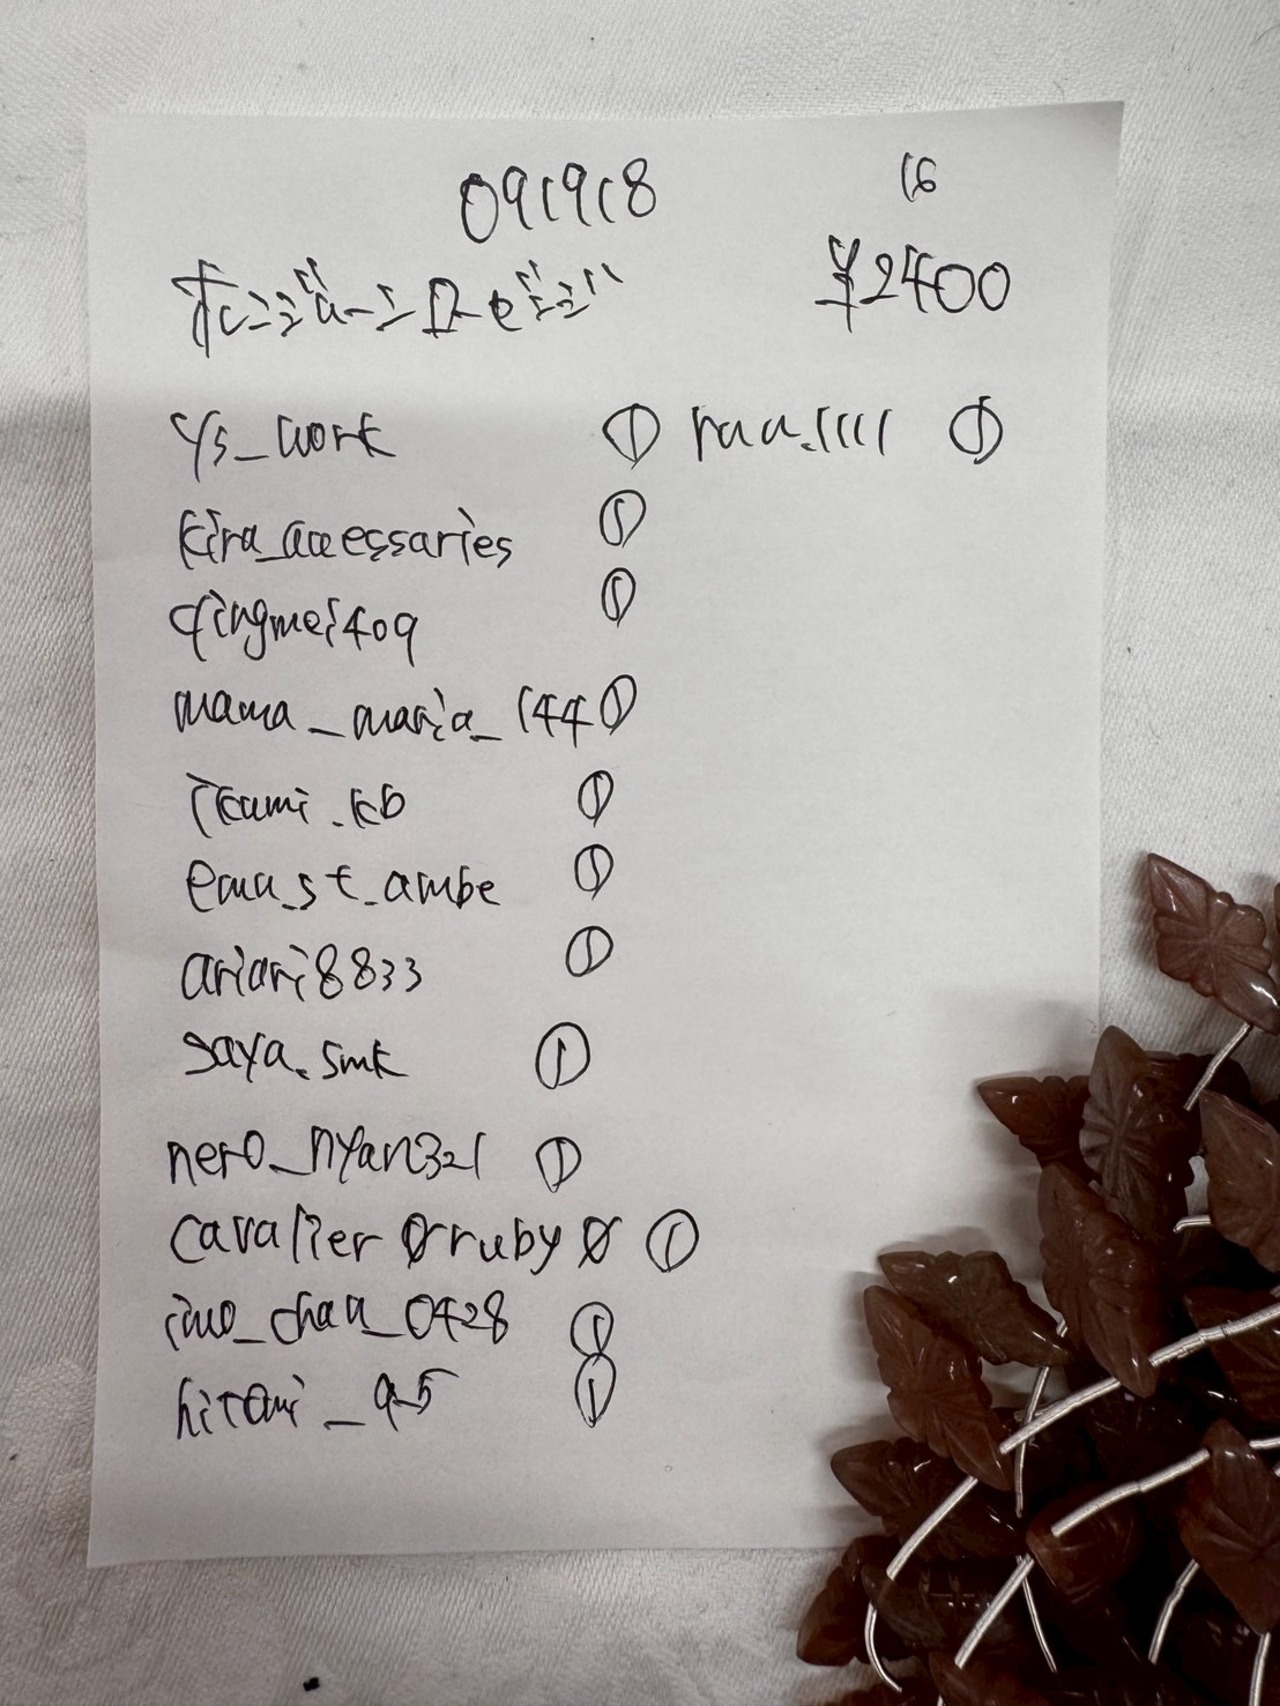 091918 16
¥2400
ys_work ① raa.1111 ①
kira_accessaries ①
qingmei409 ①
mama_maria_144 ①
ikumi.kb ①
emu_st_ambe ①
ariari8833 ①
saya.smk ①
nero_nyan321 ①
cavalier0rruby0 ①
imo_chan_0428 ①
hitomi_95 ①